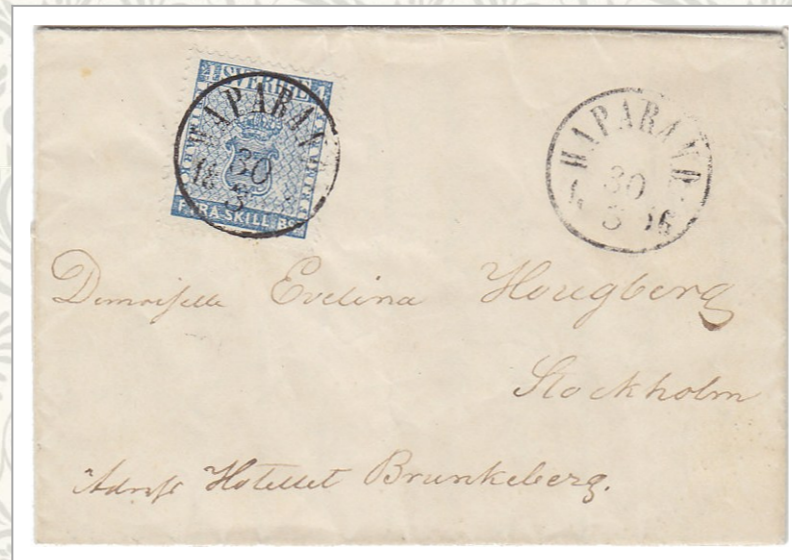 4 SVERIGE 4
FYRA SKILL. BCO
HAPARAN
30
3
HAPARAND
30
3
Demoiselle Evelina Hougberg
Stockholm
Adress Hotellet Brunkeberg.